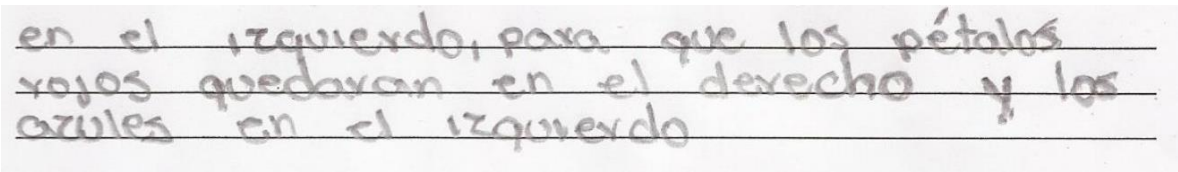 en el izquierdo, para que los pétalos
rojos quedaran en el derecho y los
azules en el izquierdo